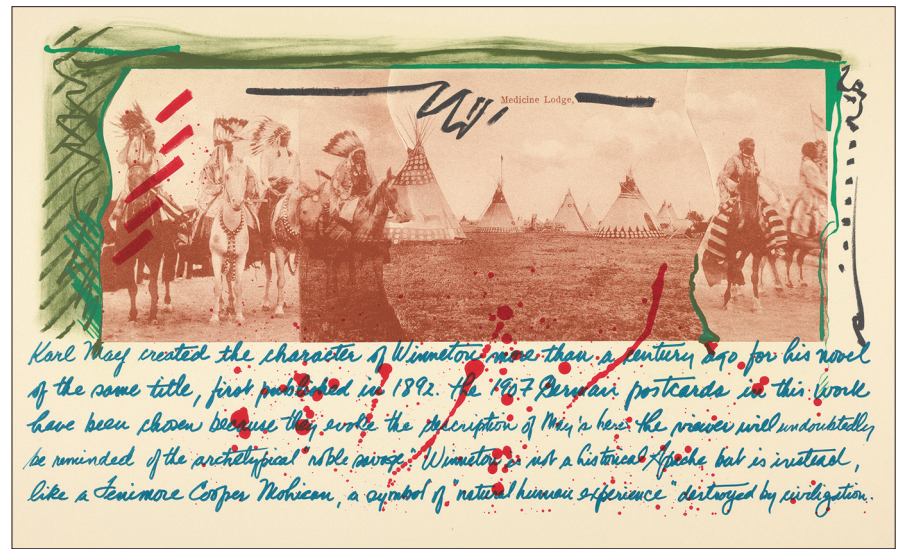 Medicine Lodge,
Karl May created the character of Winnetou more than a century ago for his novel
of the same title, first published in 1892. the 1907 German postcards in this work
have been chosen because they evoke the description of May's hero. the viewer will undoubtedly
be reminded of the archetypical "noble savage." Winnetou is not a historical Apache but is instead,
like a Fenimore Cooper Mohican, a symbol of "natural human experience" destroyed by civilization.